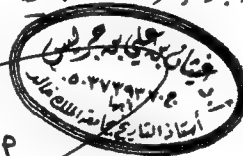 غيثان بن علي بن جريس
ج. ٠٥٠٣٧٣٩٣٢٠
أبها
أستاذ التاريخ بجامعة الملك خالد